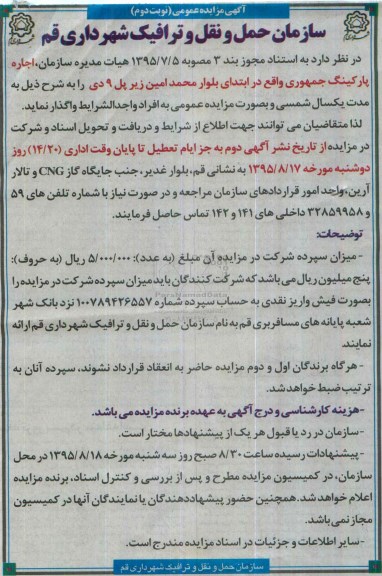 آگهی مزایده عمومی (نوبت دوم)
سازمان حمل و نقل و ترافیک شهرداری قم
در نظر دارد به استناد مجوز بند ۳ مصوبه ۱۳۹۵/۷/۵ هیات مدیره سازمان، اجاره
پارکینگ جمهوری واقع در ابتدای بلوار محمد امین زیر پل ۹ دی را به شرح ذیل به
مدت یکسال شمسی و بصورت مزایده عمومی به افراد واجدالشرایط واگذار نماید.
لذا متقاضیان می توانند جهت اطلاع از شرایط و دریافت و تحویل اسناد و شرکت
در مزایده از تاریخ نشر آگهی دوم به جز ایام تعطیل تا پایان وقت اداری (۱۴/۲۰) روز
دوشنبه مورخه ۱۳۹۵/۸/۱۷ به نشانی قم، بلوار غدیر، جنب جایگاه گاز CNG و تالار
آرین، واحد امور قراردادهای سازمان مراجعه و در صورت نیاز با شماره تلفن های ۵۹
و ۳۲۸۵۹۹۵۸ داخلی های ۱۴۱ و ۱۴۲ تماس حاصل فرمایند.
توضیحات:
-میزان سپرده شرکت در مزایده آن مبلغ (به عدد): ۵/۰۰۰/۰۰۰ ریال (به حروف):
پنج میلیون ریال می باشد که شرکت کنندگان باید میزان سپرده شرکت در مزایده را
بصورت فیش واریز نقدی به حساب سپرده شماره ۱۰۰۷۸۹۴۲۶۵۵۷ نزد بانک شهر
شعبه پایانه های مسافربری قم به نام سازمان حمل و نقل و ترافیک شهرداری قم ارائه
نمایند.
-هرگاه برندگان اول و دوم مزایده حاضر به انعقاد قرارداد نشوند، سپرده آنان به
ترتیب ضبط خواهد شد.
-هزینه کارشناسی و درج آگهی به عهده برنده مزایده می باشد.
-سازمان در رد یا قبول هر یک از پیشنهادها مختار است.
-پیشنهادات رسیده ساعت ۸/۳۰ صبح روز سه شنبه مورخه ۱۳۹۵/۸/۱۸ در محل
سازمان، در کمیسیون مزایده مطرح و پس از بررسی و کنترل اسناد، برنده مزایده
اعلام خواهد شد. همچنین حضور پیشنهاددهندگان یا نمایندگان آنها در کمیسیون
مجاز نمی باشد.
-سایر اطلاعات و جزئیات در اسناد مزایده مندرج است.
سازمان حمل و نقل و ترافیک شهرداری قم